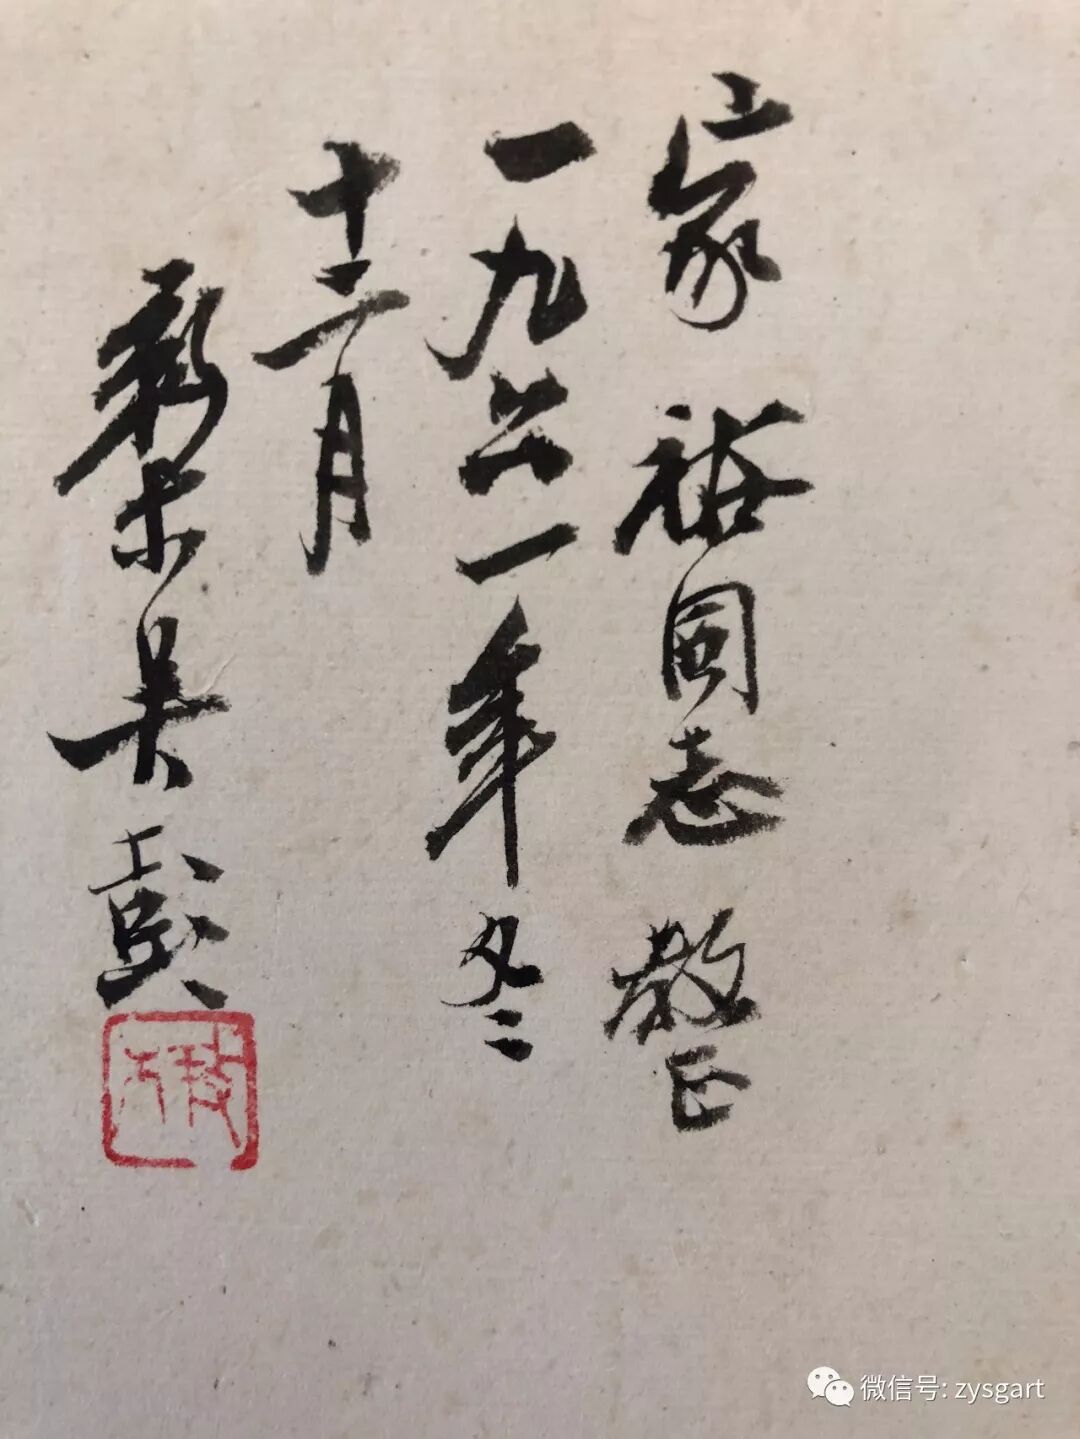 家裕同志教正
一九六一年冬
十二月
黎士吴彭
微信号: zysgart